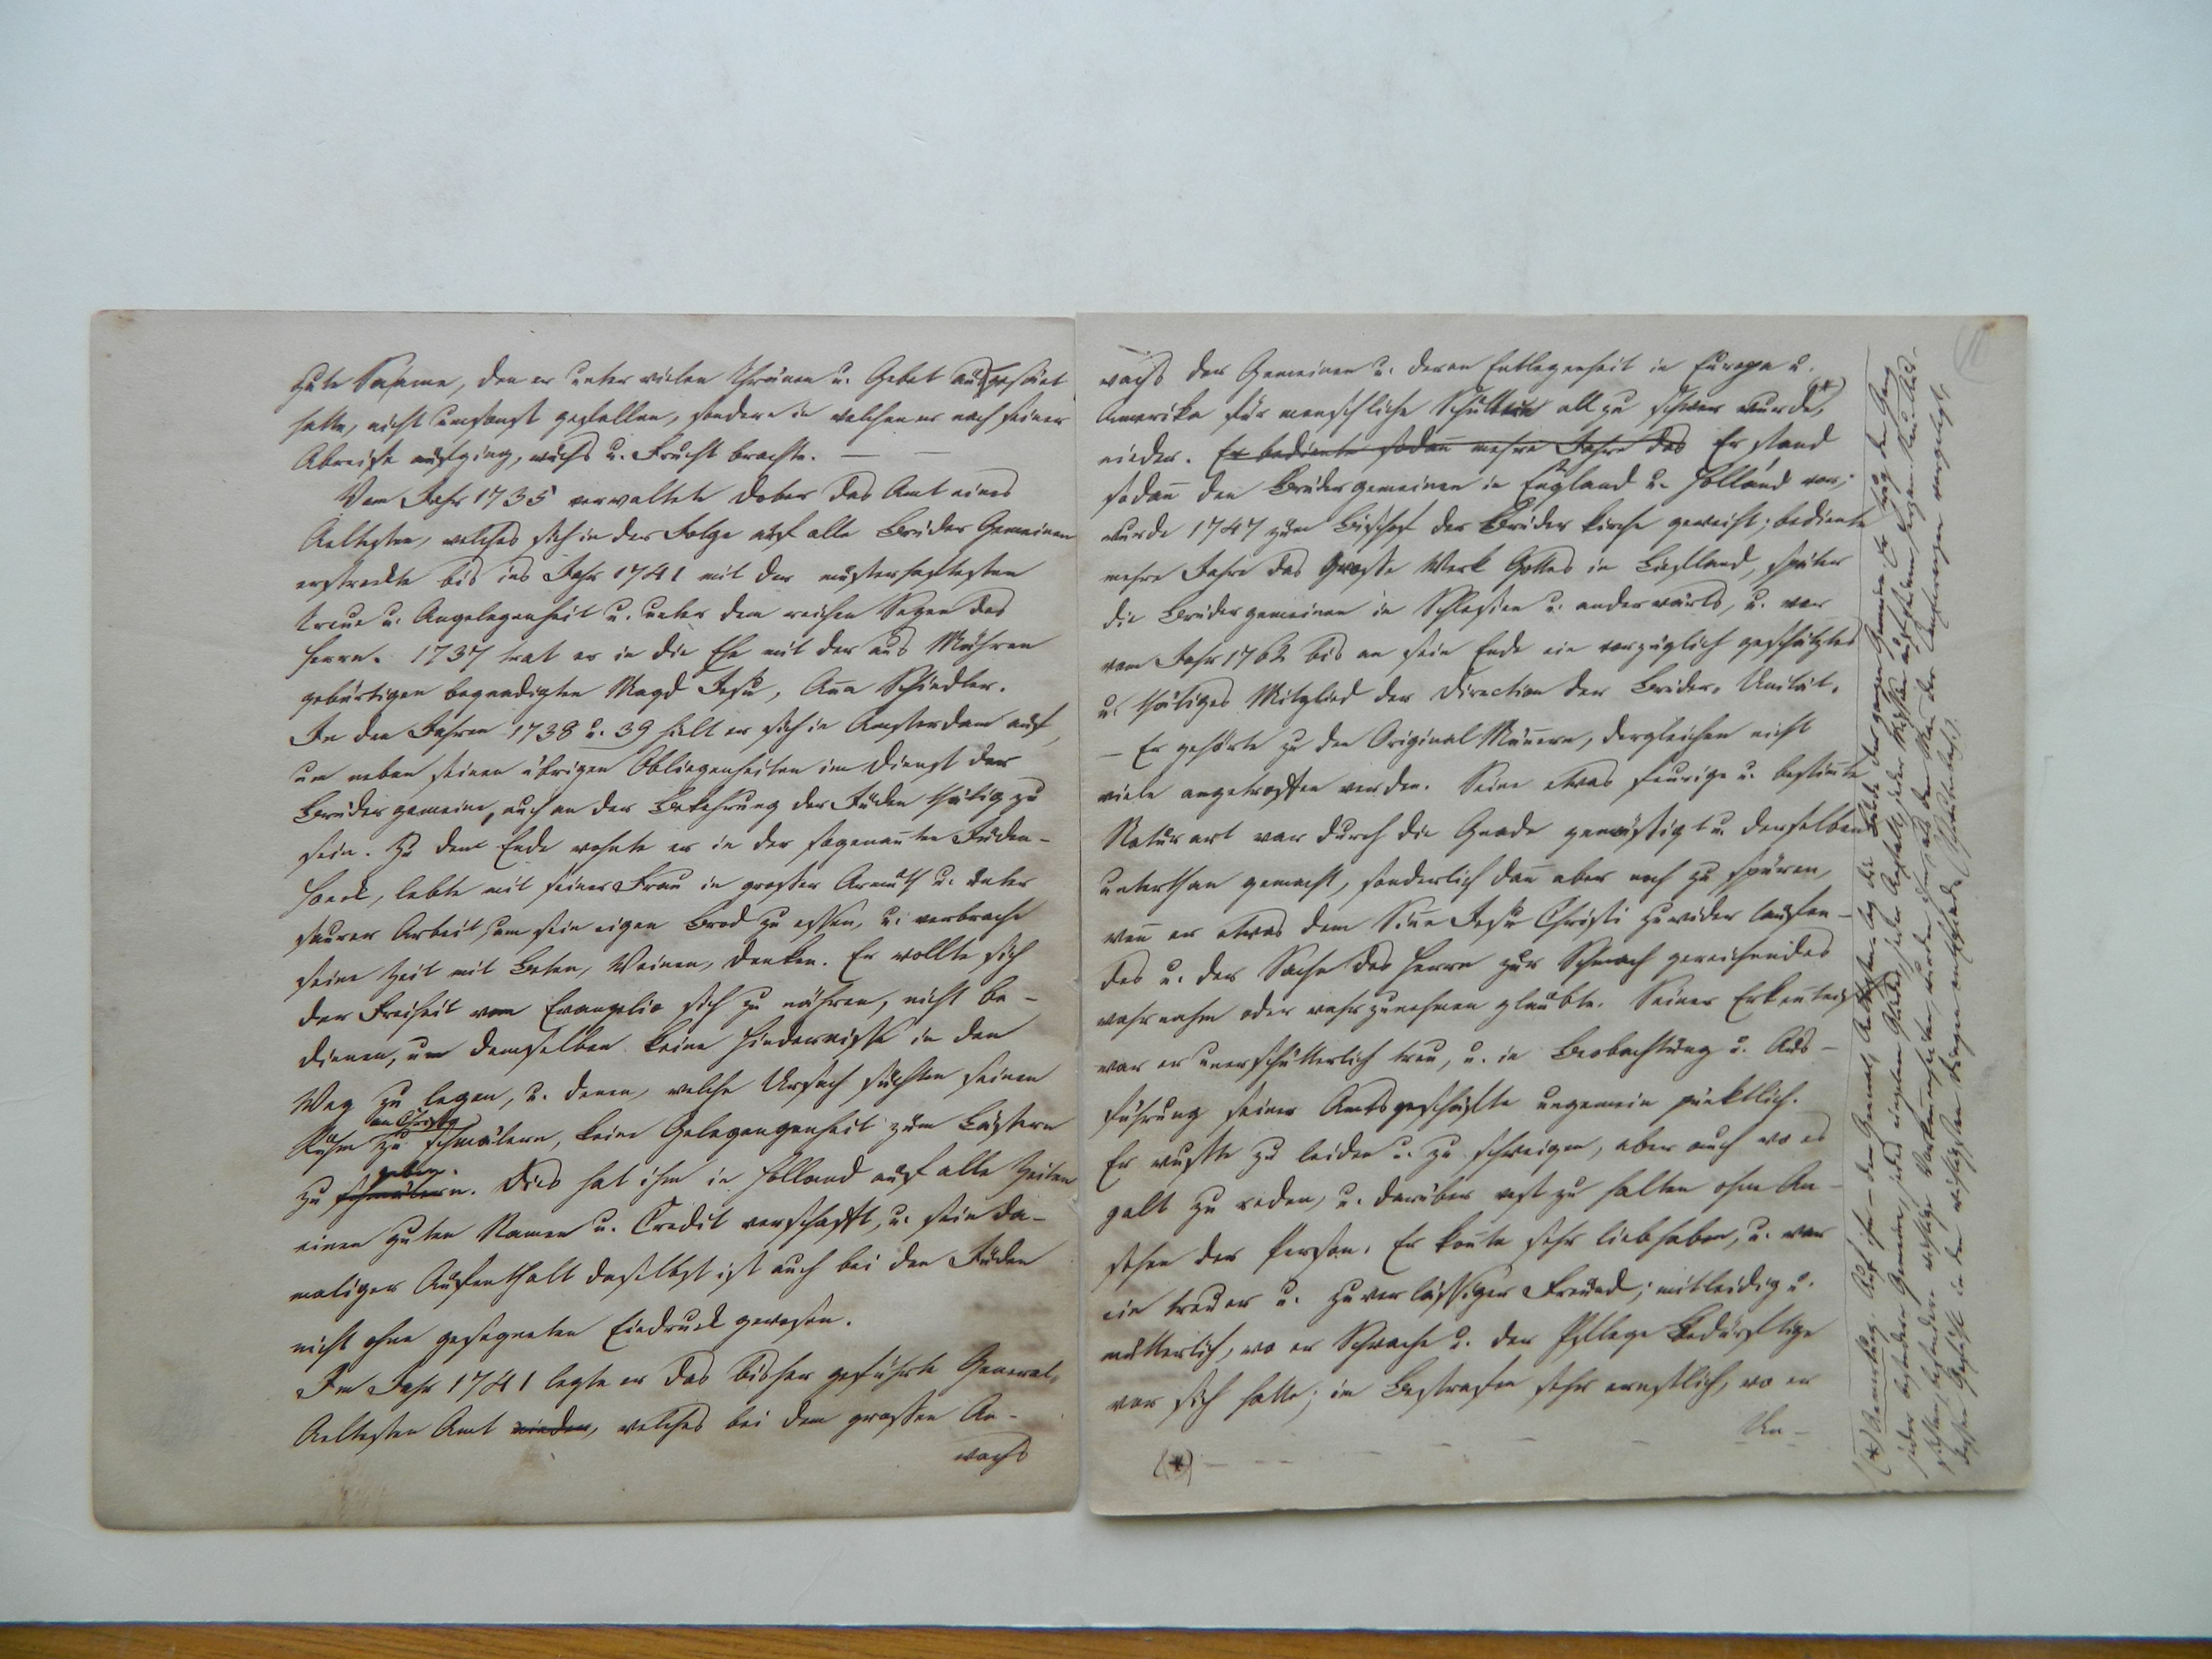 gute Saame, den er unter vielen Thränen u. Gebet ausgesäet
hatte, nicht umsonst gefallen, sondern in welchen er nach seiner
Abreise aufging, wuchs u. Frucht brachte. — —
Vom Jahr 1735 verwaltete Dober das Amt eines
Aeltesten, welches sich in der Folge auf alle Brüder Gemeinen
erstreckte bis ins Jahr 1741 mit der musterhaftesten
Treue u. Angelegenheit u. unter dem reichen Segen des
Herrn. 1737 trat er in die Ehe mit der aus Mähren
gebürtigen begnadigten Magd Jesu, Aña Schindler.
In den Jahren 1738 u. 39 hielt er sich in Amsterdam auf,
um neben seinen übrigen Obliegenheiten im Dienst der
Brüdergemeine, auch an der Bekehrung der Juden thätig zu
sein. Zu dem Ende wohnte er in der sogenañten Juden-
hoeck, lebte mit seiner Frau in grosser Armuth u. unter
saurer Arbeit, um sein eigen Brod zu essen, u. verbrachte
seine Zeit mit Beten, Weinen, Denken. Er wollte sich
der Freiheit vom Evangelio sich zu nähren, nicht be-
dienen, um demselben keine Hindernisse in den
Weg zu legen, u. denen, welche Ursach suchten seinen
Ruhm an Christo zu schmälern, keine Gelegengenheit zum Lästern
zu schmälern geben. Dies hat ihm in Holland auf alle Zeiten
einen guten Namen u. Credit verschafft, u. sein da-
maliger Aufenthalt daselbst ist auch bei den Juden
nicht ohne gesegneten Eindruck gewesen.
Im Jahr 1741 legte er das bisher geführte General-
Aeltesten Amt nieder, welches bei dem grossen An-
wachs
wachs der Gemeinen u. deren Entlegenheit in Europa u.
Amerika für menschliche Schultern all zu schwer wurde, (*)
nieder. Er bediente sodañ mehre Jahre das Er stand
sodañ den Brüdergemeinen in England u. Holland vor;
wurde 1747 zum Bischof der Brüder Kirche geweiht; bediente
mehre Jahre das Grosse Werk Gottes in Liefland, später
die Brüdergemeinen in Schlesien u. anderwärts, u. war
vom Jahr 1762 bis an sein Ende ein vorzüglich geschätztes
u. thätiges Mitglied der Direction der Brüder-Unität.
— Er gehörte zu den Original Mäñern, dergleichen nicht
viele angetroffen werden. Seine etwas feurige u. bestim̃te
Naturart war durch die Gnade gemässigt u. derselben
unterthan gemacht, sonderlich dañ aber noch zu spüren,
weñ er etwas dem Siñe Jesu Christi zuwider laufen-
des u. der Sache des Herrn zur Schmach gereichendes
wahrnahm oder wahrzunehmen glaubte. Seiner Erkeñtniß
war er unerschütterlich treu, u. in Beobachtung u. Aus-
führung seiner Amtsgeschäfte ungemein pünktlich.
Er wußte zu leiden u. zu schweigen, aber auch wo es
galt zu reden, u. darüber vest zu halten ohne An-
sehen der Person. Er koñte sehr liebhaben, u. war
ein treuer u. zuverlässiger Freund; mitleidig u.
mütterlich, wo er Schwache u. der Pflege Bedürftige
vor sich hatte; im Bestrafen sehr ernstlich, wo er
Un-
(*) — — —
(*) Bemerkung. Auf ihm – dem General Aeltesten lag die Bürde der ganzen Gemeine. Er trug den Gang
jeder besondern Gemeine, jedes einzelnen Gliedes, jeder Anstalt, jeder Mission auf seinem Herzen